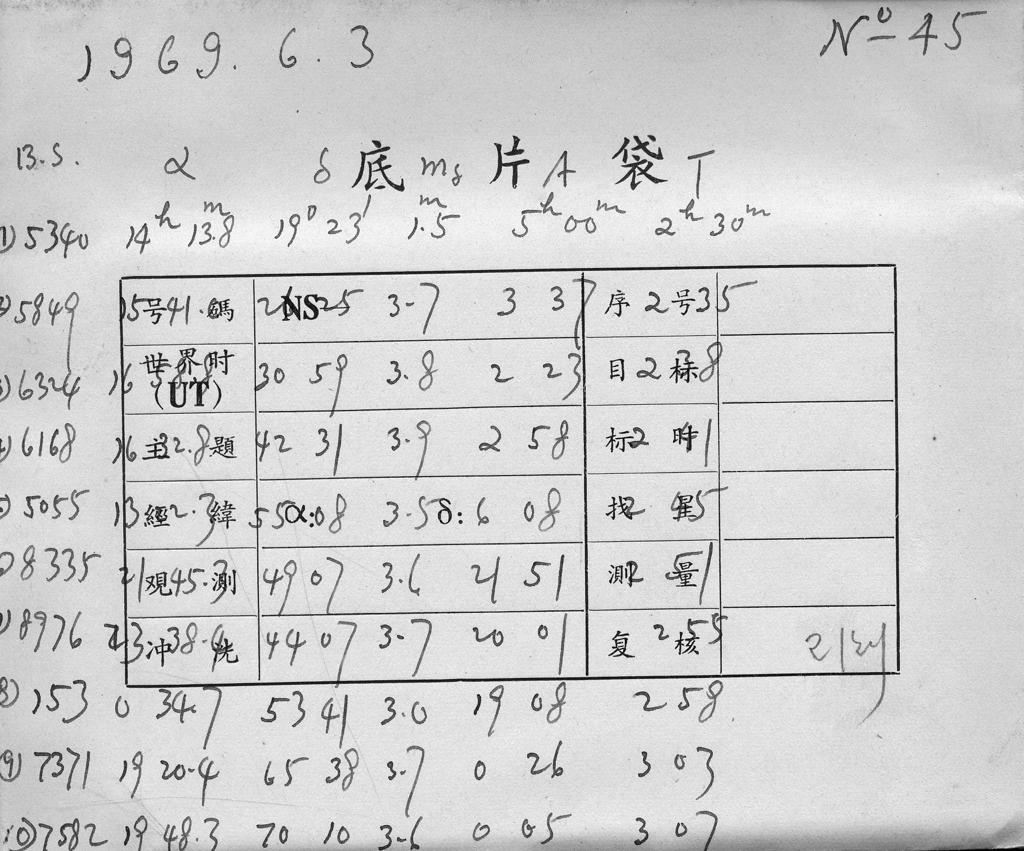 1969. 6. 3 Nº 45
底片袋
B.S. α δ m₈ A T
1) 5340 14ʰ 13.8ᵐ 19° 23′ 1.5ᵐ 5ʰ 00ᵐ 2ʰ 30ᵐ
号碼 NS 序号
2) 5849 15 41. 26 25 3.7 3 37 2 35
世界时 (UT) 目标
3) 6324 16 30 59 3.8 2 23 2 38
主題 标时
4) 6168 16 32.8 42 31 3.9 2 58 2 41
經緯 α: δ: 找星
5) 5055 13 2.3 55 08 3.5 6 08 2 45
观測 測量
6) 8335 21 45.3 49 07 3.6 21 51 2 51
冲洗 复核
7) 8976 23 38.4 44 07 3.7 20 01 2 55
8) 153 0 34.7 53 41 3.0 19 08 2 58
9) 7371 19 20.4 65 38 3.7 0 26 3 03
10) 7582 19 48.3 70 10 3.6 0 05 3 07